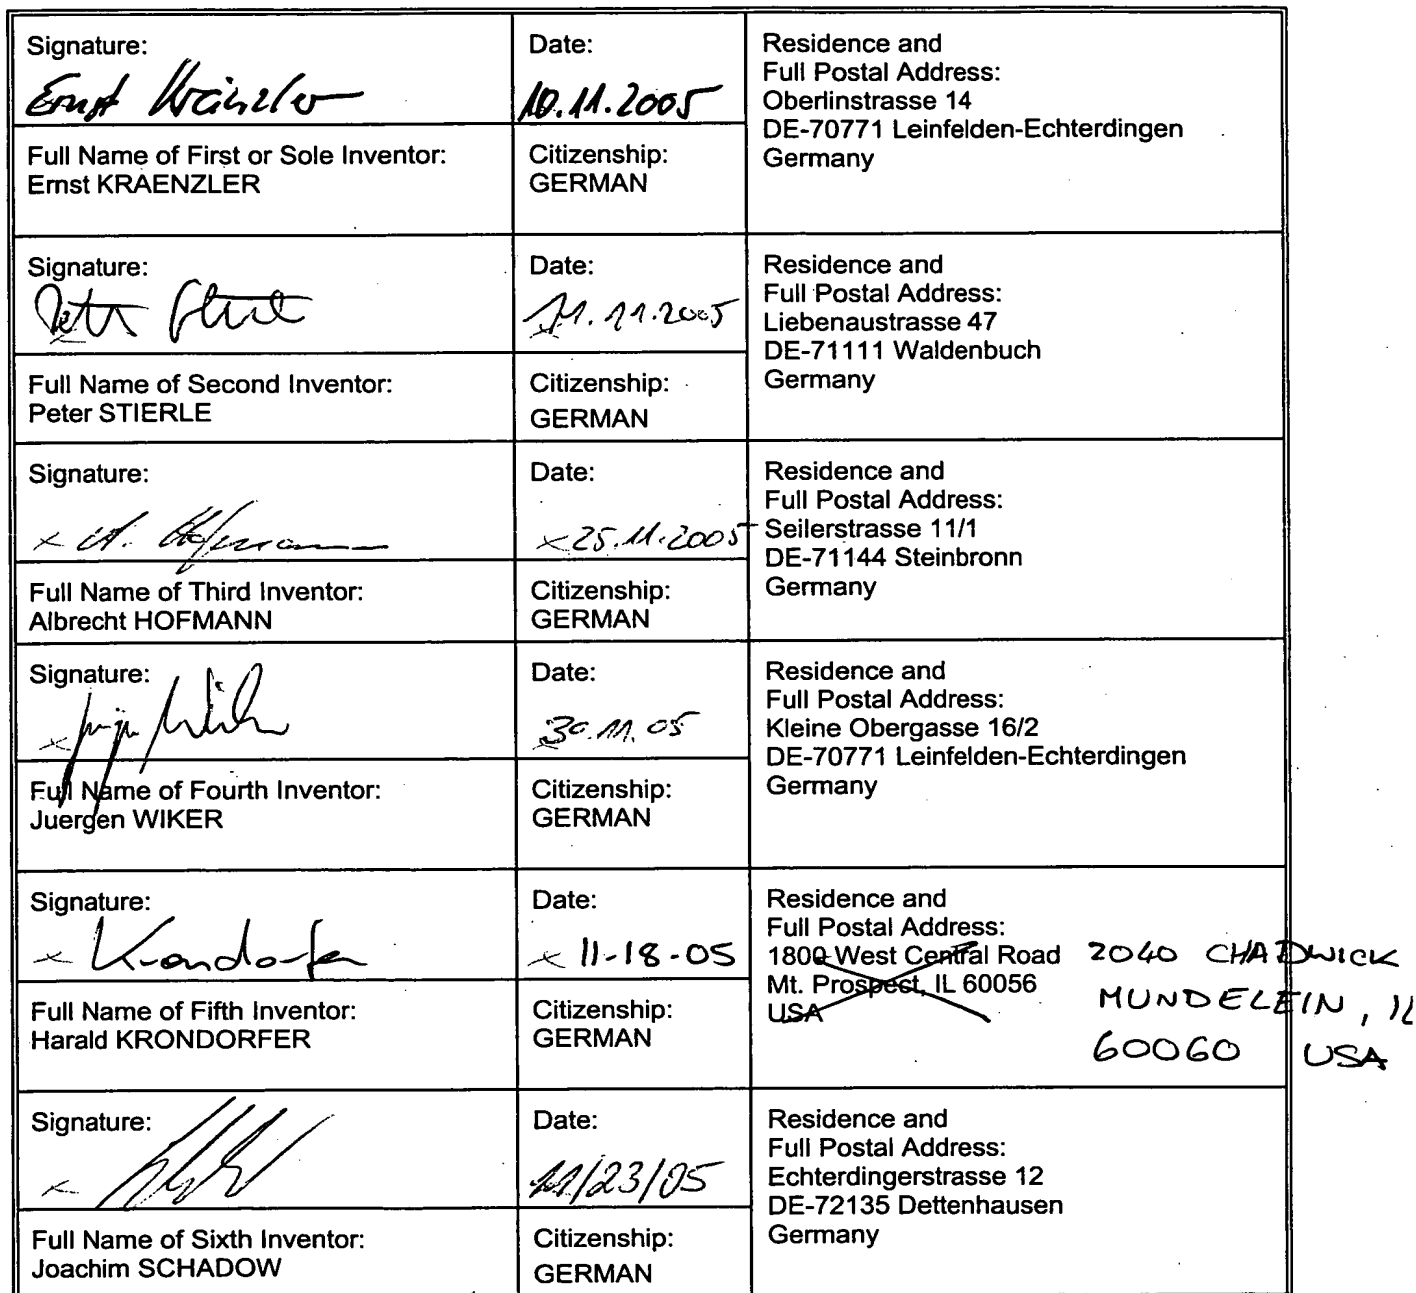 Signature:
Ernst Kränzler
Date:
10.11.2005
Residence and
Full Postal Address:
Oberlinstrasse 14
DE-70771 Leinfelden-Echterdingen
Germany
Full Name of First or Sole Inventor:
Ernst KRAENZLER
Citizenship:
GERMAN
Signature:
Peter
Date:
11.11.2005
Residence and
Full Postal Address:
Liebenaustrasse 47
DE-71111 Waldenbuch
Germany
Full Name of Second Inventor:
Peter STIERLE
Citizenship:
GERMAN
Signature:
x A. Hofmann
Date:
x 25.11.2005
Residence and
Full Postal Address:
Seilerstrasse 11/1
DE-71144 Steinbronn
Germany
Full Name of Third Inventor:
Albrecht HOFMANN
Citizenship:
GERMAN
Signature:
x
Date:
30.11.05
Residence and
Full Postal Address:
Kleine Obergasse 16/2
DE-70771 Leinfelden-Echterdingen
Germany
Full Name of Fourth Inventor:
Juergen WIKER
Citizenship:
GERMAN
Signature:
x Krondorfer
Date:
x 11-18-05
Residence and
Full Postal Address:
1800 West Central Road
Mt. Prospect, IL 60056
USA
2040 CHADWICK
MUNDELEIN, IL
60060 USA
Full Name of Fifth Inventor:
Harald KRONDORFER
Citizenship:
GERMAN
Signature:
x
Date:
11/23/05
Residence and
Full Postal Address:
Echterdingerstrasse 12
DE-72135 Dettenhausen
Germany
Full Name of Sixth Inventor:
Joachim SCHADOW
Citizenship:
GERMAN